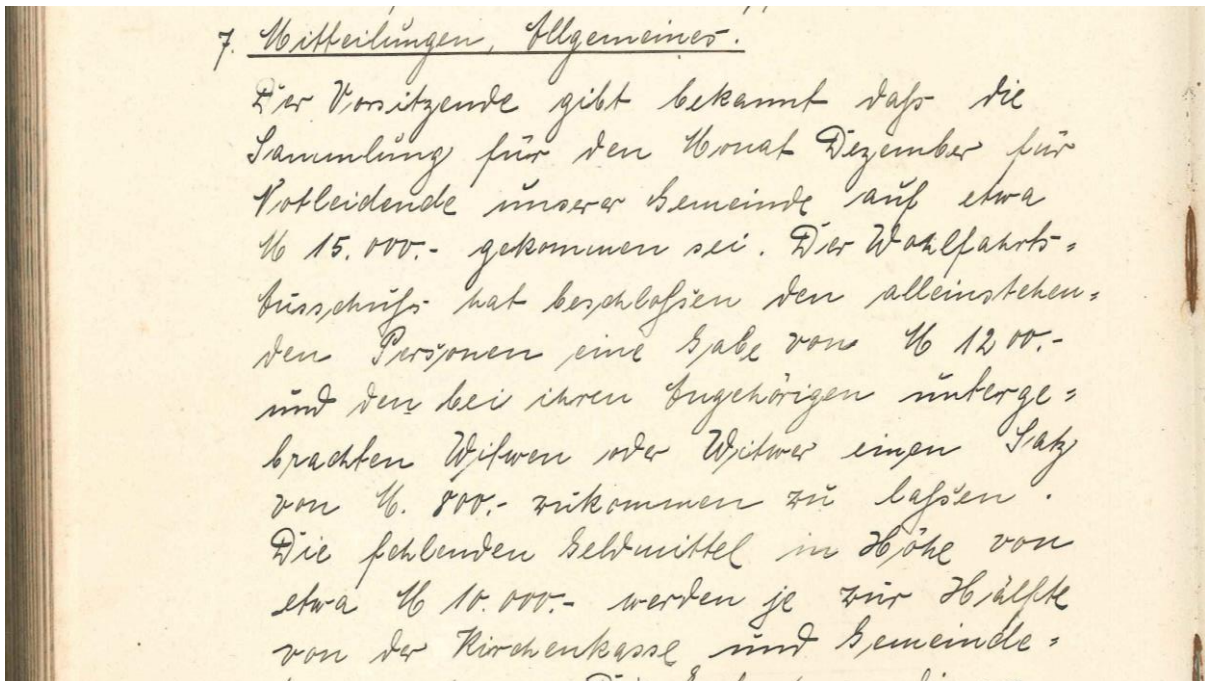 7. Mitteilungen, Allgemeines.
Der Vorsitzende gibt bekannt daß die
Sammlung für den Monat Dezember für
Notleidende unserer Gemeinde auf etwa
M 15.000.- gekommen sei. Der Wohlfahrts=
Ausschuß hat beschloßen den alleinstehen=
den Personen eine Gabe von M 1200.-
und den bei ihren Angehörigen unterge=
brachten Witwen oder Witwer einen Satz
von M. 800.- zukommen zu laßen.
Die fehlenden Geldmittel in Höhe von
etwa M 10.000.- werden je zur Hälfte
von der Kirchenkasse und Gemeinde=